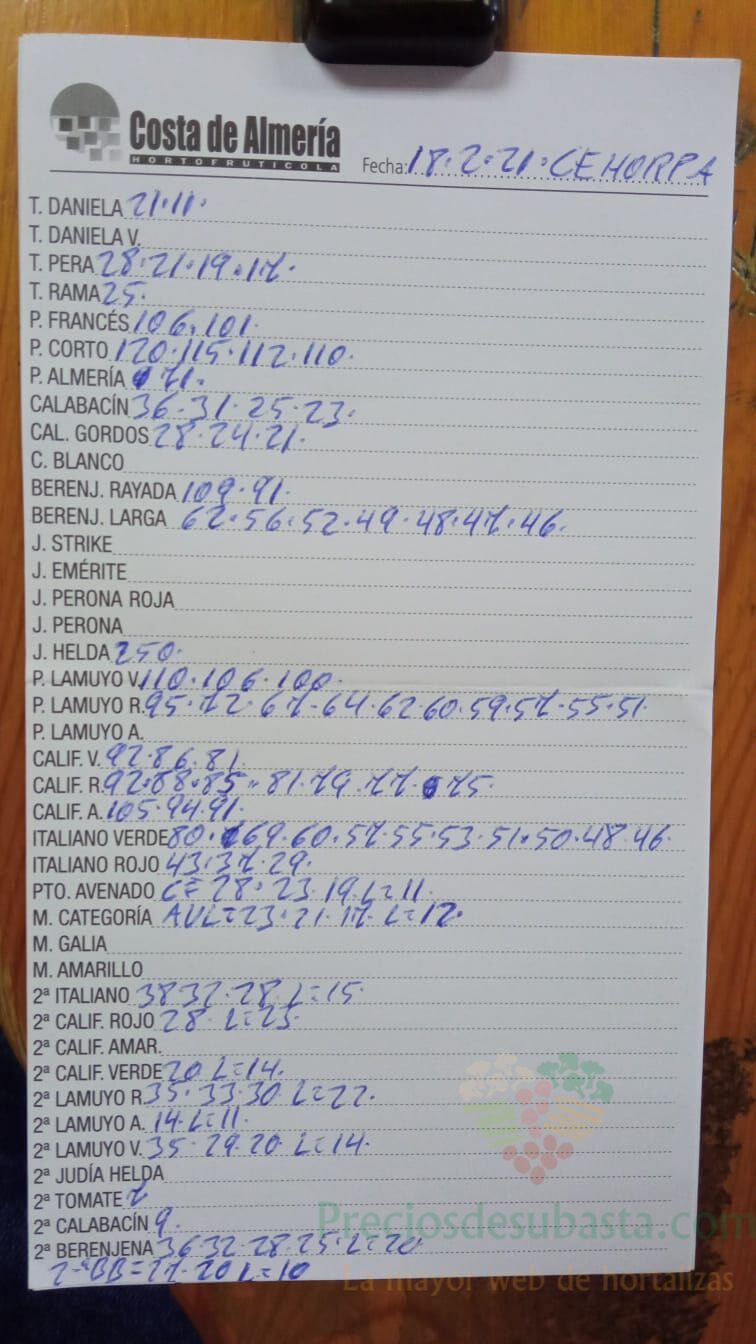 Costa de Almería
HORTOFRUTICOLA
Fecha: 18.2.21. CEHORPA
T. DANIELA 21.11.
T. DANIELA V.
T. PERA 28.21.19.17.
T. RAMA 25.
P. FRANCÉS 106.101.
P. CORTO 120.115.112.110.
P. ALMERÍA 71.
CALABACÍN 36.31.25.23.
CAL. GORDOS 28.24.21.
C. BLANCO
BERENJ. RAYADA 109.91.
BERENJ. LARGA 62.56.52.49.48.47.46.
J. STRIKE
J. EMÉRITE
J. PERONA ROJA
J. PERONA
J. HELDA 250.
P. LAMUYO V. 110.106.100.
P. LAMUYO R. 95.72.67.64.62.60.59.57.55.51.
P. LAMUYO A.
CALIF. V. 92.86.81.
CALIF. R. 92.88.85.81.79.77.75.
CALIF. A. 105.94.91.
ITALIANO VERDE 80.69.60.57.55.53.51.50.48.46.
ITALIANO ROJO 43.37.29.
PTO. AVENADO CF 28.23.19.L=11.
M. CATEGORÍA AVL=23.21.17. L=12.
M. GALIA
M. AMARILLO
2ª ITALIANO 38 32.28.L=15.
2ª CALIF. ROJO 28. L=23.
2ª CALIF. AMAR.
2ª CALIF. VERDE 20 L=14.
2ª LAMUYO R. 35.33.30 L=22.
2ª LAMUYO A. 14.L=11.
2ª LAMUYO V. 35.29.20 L=14.
2ª JUDÍA HELDA
2ª TOMATE 7
2ª CALABACÍN 9.
2ª BERENJENA 36.32.28.25.L=20
2ªBB=27.20 L=10
Preciosdesubasta.com
La mayor web de hortalizas